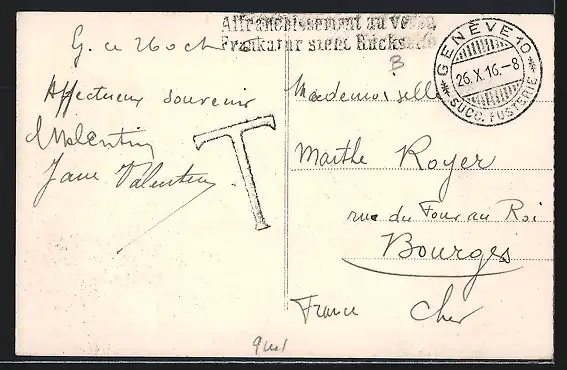 Affranchissement au verso
Frankatur siehe Rückseite
GENÈVE 10
26.X.16.-8
SUCC. FUSTERIE
B
G. ce 26 oct
Affectueux souvenir
Valentin
Jane Valentin
T
Mademoiselle
Marthe Royer
rue du Four au Roi
Bourges
France Cher